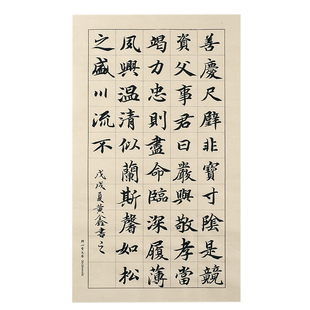 善慶尺璧非寶寸陰是競
資父事君曰嚴與敬孝當
竭力忠則盡命臨深履薄
夙興温清似蘭斯馨如松
之盛川流不
戊戌夏黄鑫書之